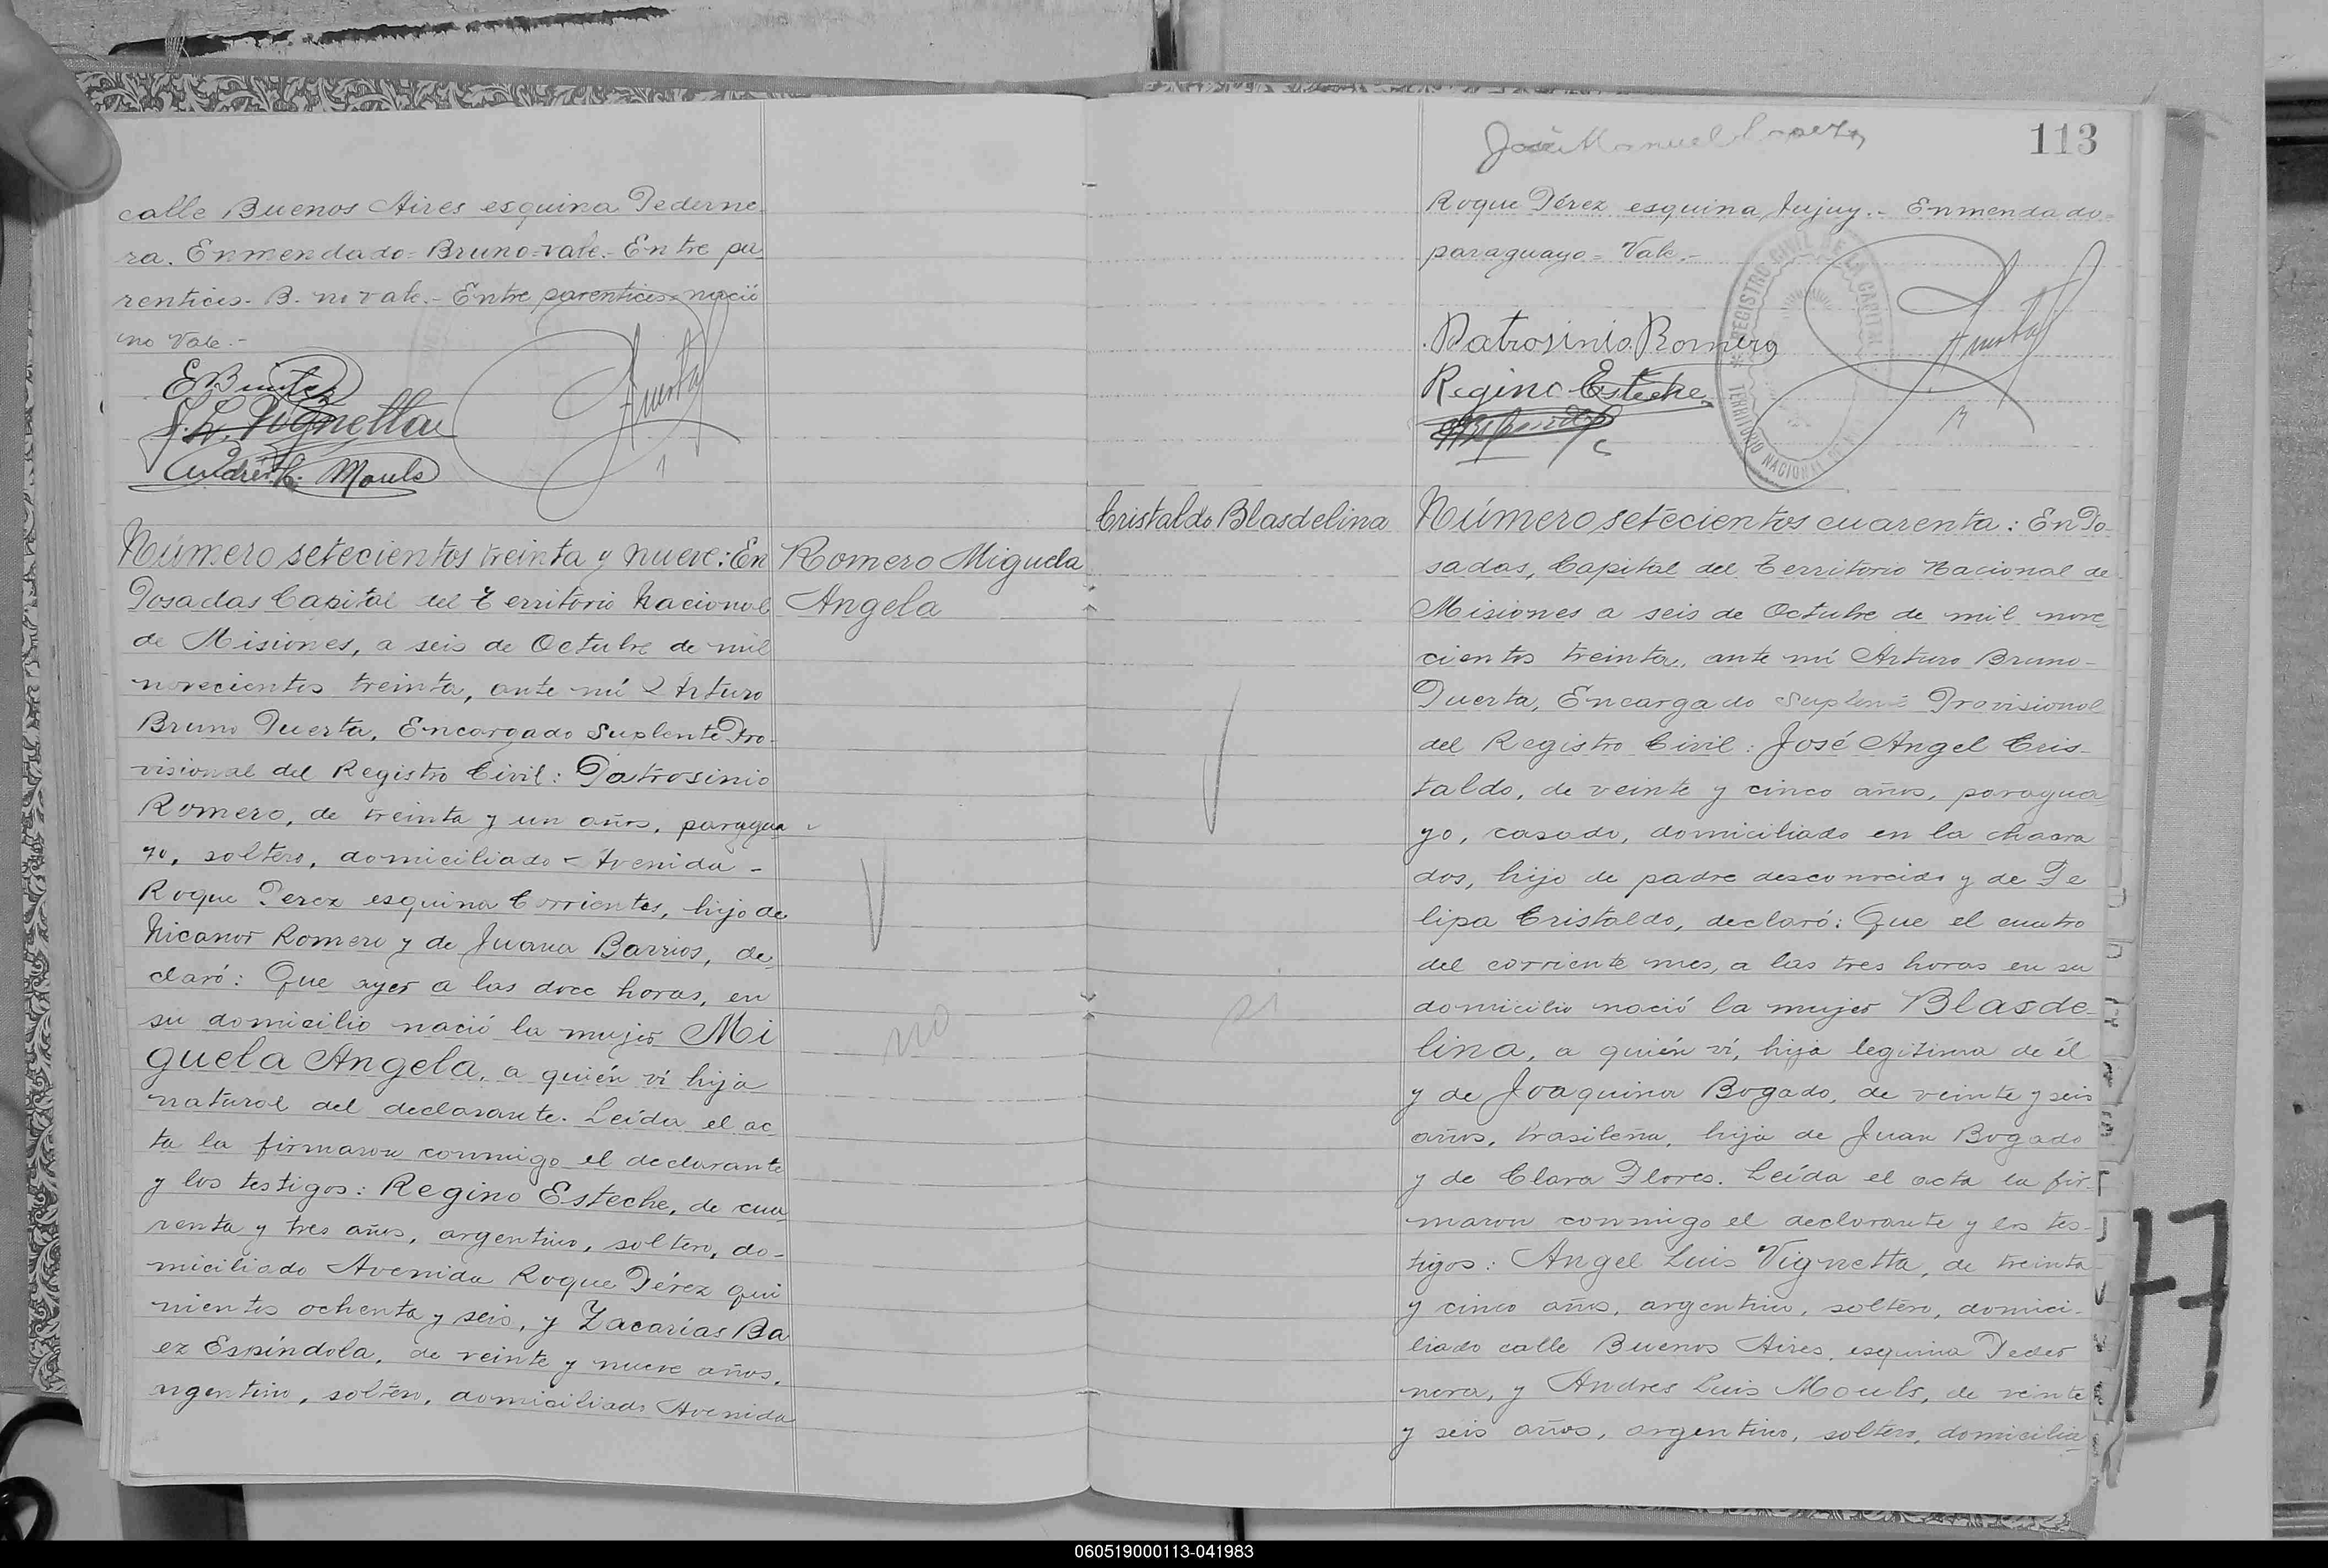 calle Buenos Aires esquina Pederne
ra. Enmendado=Bruno=vale.-Entre pa
rentices- B. no vale.- Entre parentices=nació
no Vale.-
E Benitez
A. L. Vignetta
Andrés L. Mouls
Puerta
Número setecientos treinta y nueve: En
Posadas Capital del Territorio Nacional
de Misiones, a seis de Octubre de mil
novecientos treinta, ante mí Arturo
Bruno Puerta, Encargado Suplente Pro-
visional del Registro Civil: Patrosinio
Romero, de treinta y un años, paragua
yo, soltero, domiciliado Avenida -
Roque Perez esquina Corrientes, hijo de
Nicanor Romero y de Juana Barrios, de
claró: Que ayer a las doce horas, en
su domicilio nació la mujer Mi
guela Angela, a quién ví hija
natural del declarante. Leída el ac
ta la firmaron conmigo el declarante
y los testigos: Regino Esteche, de cua
renta y tres años, argentino, soltero, do-
miciliado Avenida Roque Pérez qui
nientos ochenta y seis, y Zacarías Ba
ez Espíndola, de veinte y nueve años,
argentino, soltero, domiciliado Avenida
Romero Miguela
Angela
no
José Manuel Lopez
113
Roque Pérez esquina Jujuy.- Enmendado=
paraguayo= Vale.-
Patrosinio Romero
Regino Esteche
Puerta
REGISTRO CIVIL DE LA CAPITAL
TERRITORIO NACIONAL DE
Cristaldo Blasdelina
Número setecientos cuarenta: En Po
sadas, Capital del Territorio Nacional de
Misiones a seis de Octubre de mil nove
cientos treinta, ante mí Arturo Bruno-
Puerta, Encargado Suplente Provisional
del Registro Civil: José Angel Cris-
taldo, de veinte y cinco años, paragua
yo, casado, domiciliado en la chacra
dos, hijo de padre desconocido y de Fe
lipa Cristaldo, declaró: Que el cuatro
del corriente mes, a las tres horas en su
domicilio nació la mujer Blasde-
lina, a quién ví, hija legitima de él
y de Joaquina Bogado, de veinte y seis
años, brasileña, hija de Juan Bogado
y de Clara Flores. Leída el acta la fir-
maron conmigo el declarante y los tes-
tigos: Angel Luis Vignetta, de treinta
y cinco años, argentino, soltero, domici-
liado calle Buenos Aires esquina Peder
nera, y Andres Luis Mouls, de veinte
y seis años, argentino, soltero, domicilia
060519000113-041983